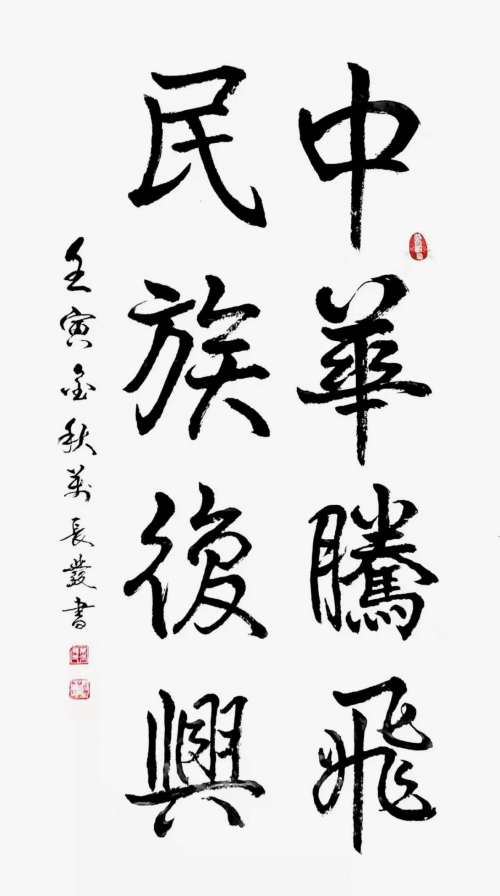 中華騰飛
民族復興
壬寅金秋萬長發書